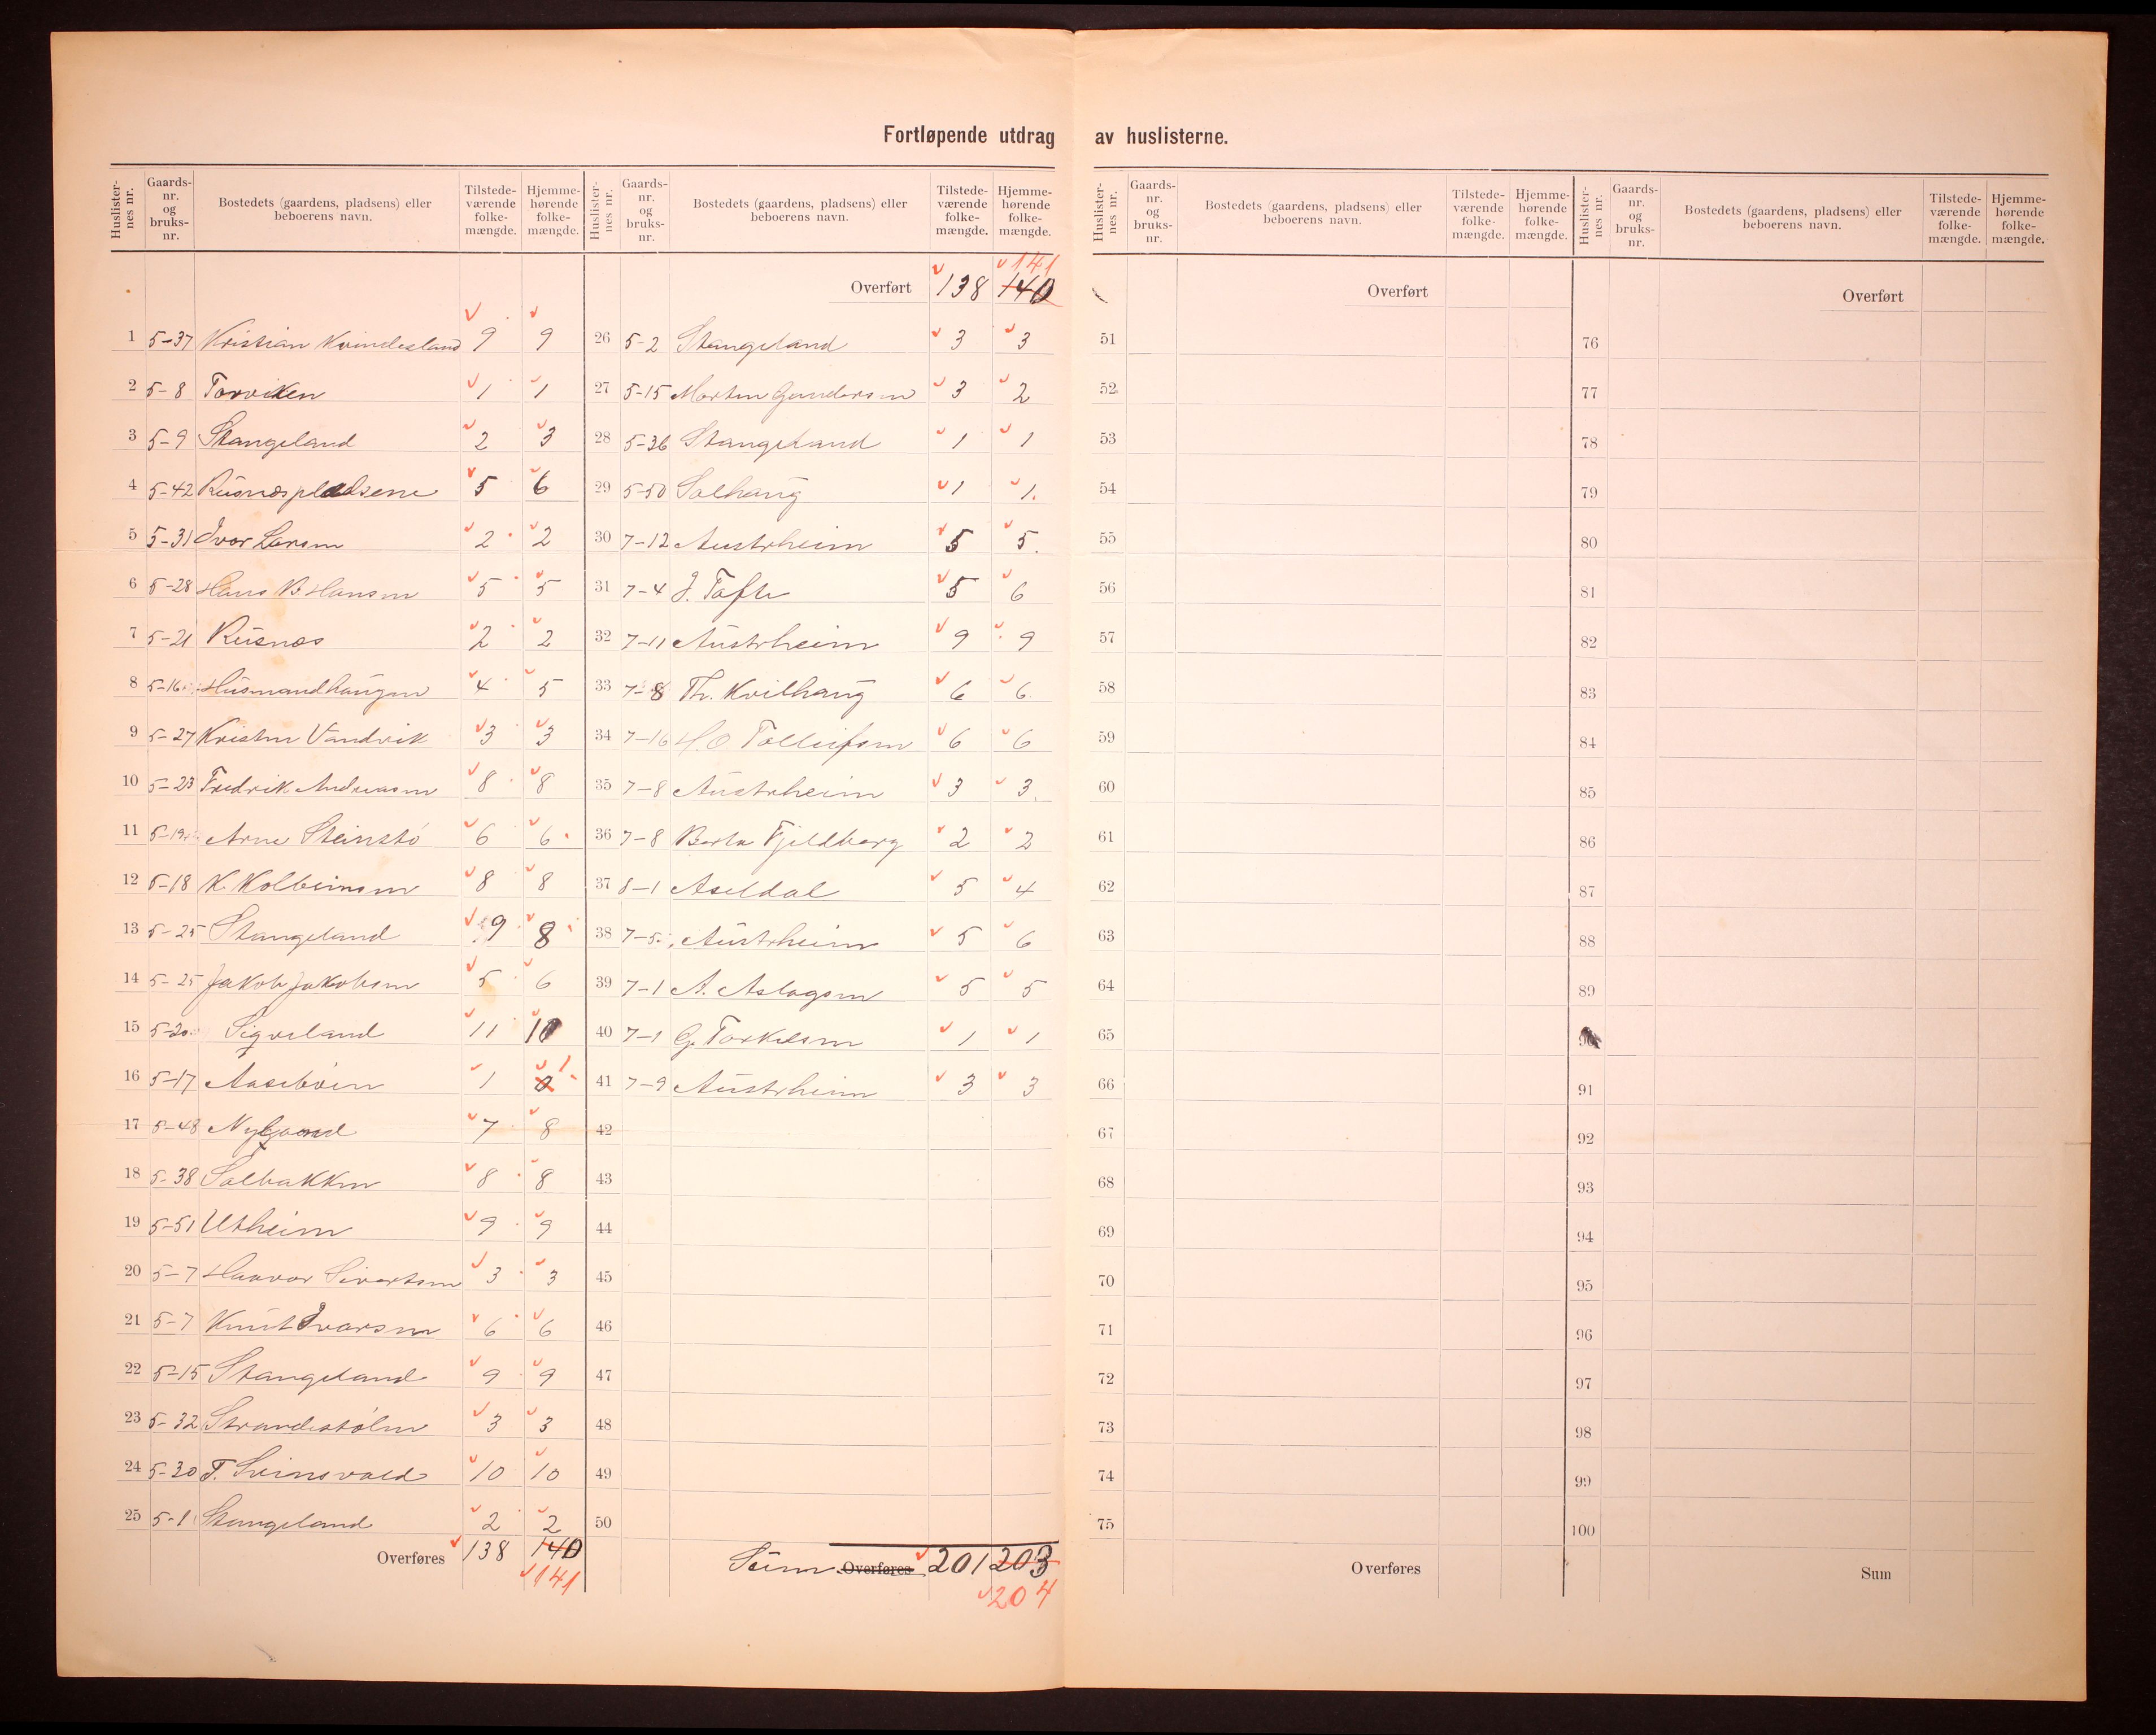 Fortløpende utdrag av huslisterne.
Huslisternes nr. Gaardsnr. og bruksnr. Bostedets (gaardens, pladsens) eller beboerens navn. Tilstedeværende folkemængde. Hjemmehørende folkemængde.
1 5-37 Kristian Kvindesland 9 9
2 5-8 Torviken 1 1
3 5-9 Stangeland 2 3
4 5-42 Rusnæspladsene 5 6
5 5-31 Ivar Larsen 2 2
6 5-28 Hans B Hansen 5 5
7 5-21 Rusnæs 2 2
8 5-16 Husmandhaugen 4 5
9 5-27 Kristen Vandvik 3 3
10 5-23 Fredrik Andreasen 8 8
11 5-19 Arne Steinstø 6 6
12 5-18 K. Kolbeinsen 8 8
13 5-25 Stangeland 9 8
14 5-25 Jakob Jakobsen 5 6
15 5-20 Sigveland 11 10
16 5-17 Aasebøen 1 0 1
17 5-48 Nygaard 7 8
18 5-38 Solbakken 8 8
19 5-51 Utheim 9 9
20 5-7 Haavar Sivertsen 3 3
21 5-7 Knut Ivarsen 6 6
22 5-15 Stangeland 9 9
23 5-32 Strandestølen 3 3
24 5-30 T. Svinsvold 10 10
25 5-1 Stangeland 2 2
Overføres 138 140
141
Huslisternes nr. Gaardsnr. og bruksnr. Bostedets (gaardens, pladsens) eller beboerens navn. Tilstedeværende folkemængde. Hjemmehørende folkemængde.
141
Overført 138 140
26 5-2 Stangeland 3 3
27 5-15 Morten Gundersen 3 2
28 5-36 Stangeland 1 1
29 5-50 Solhaug 1 1.
30 7-12 Austrheim 5 5.
31 7-4 J. Tofte 5 6
32 7-11 Austrheim 9 9
33 7-8 Th. Kvilhaug 6 6
34 7-16 H.O Tolleifsen 6 6
35 7-8 Austrheim 3 3.
36 7-8 Berta Fjeldberg 2 2
37 8-1 Aseldal 5 4
38 7-5 Austrheim 5 6
39 7-1 A. Aslagsen 5 5
40 7-1 G. Torkelsen 1 1
41 7-9 Austrheim 3 3
42
43
44
45
46
47
48
49
50
Sum Overføres 201 203
204
Huslisternes nr. Gaardsnr. og bruksnr. Bostedets (gaardens, pladsens) eller beboerens navn. Tilstedeværende folkemængde. Hjemmehørende folkemængde.
Overført
51
52
53
54
55
56
57
58
59
60
61
62
63
64
65
66
67
68
69
70
71
72
73
74
75
Overføres
Huslisternes nr. Gaardsnr. og bruksnr. Bostedets (gaardens, pladsens) eller beboerens navn. Tilstedeværende folkemængde. Hjemmehørende folkemængde.
Overført
76
77
78
79
80
81
82
83
84
85
86
87
88
89
90
91
92
93
94
95
96
97
98
99
100
Sum